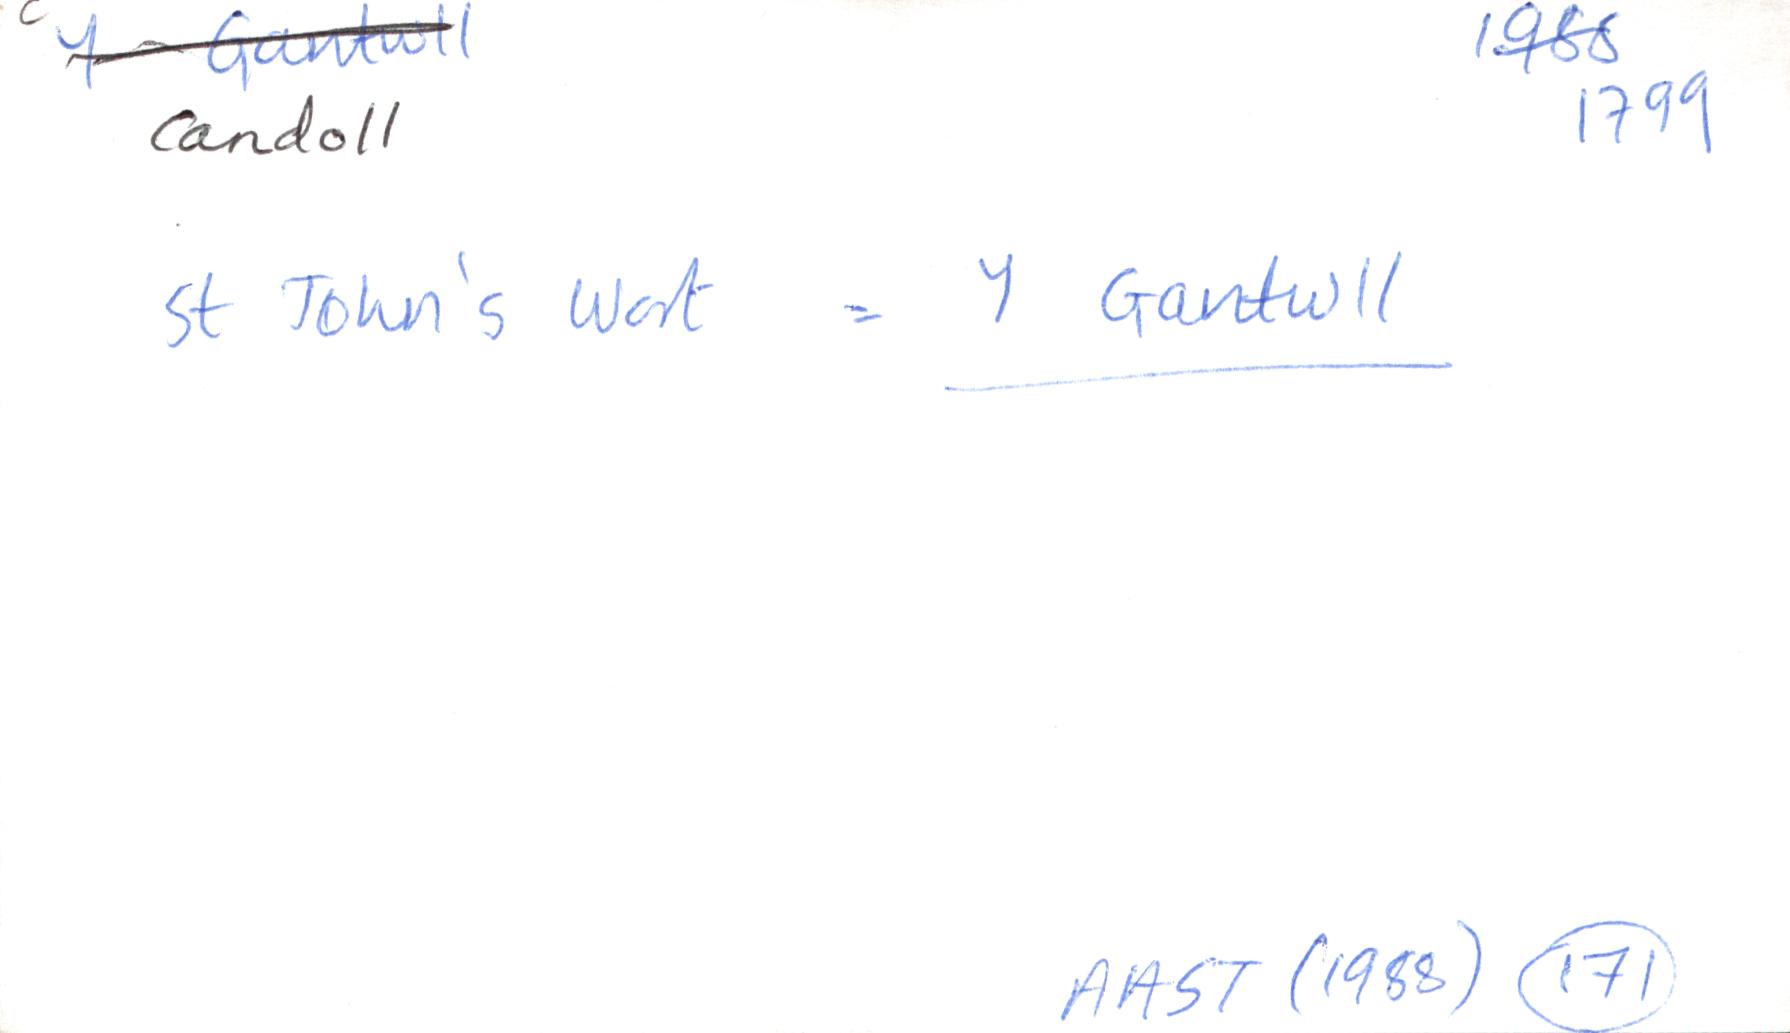 Y Gantwll 1988
Candoll 1799
St John's Wort = Y Gantwll
AAST (1988) 171